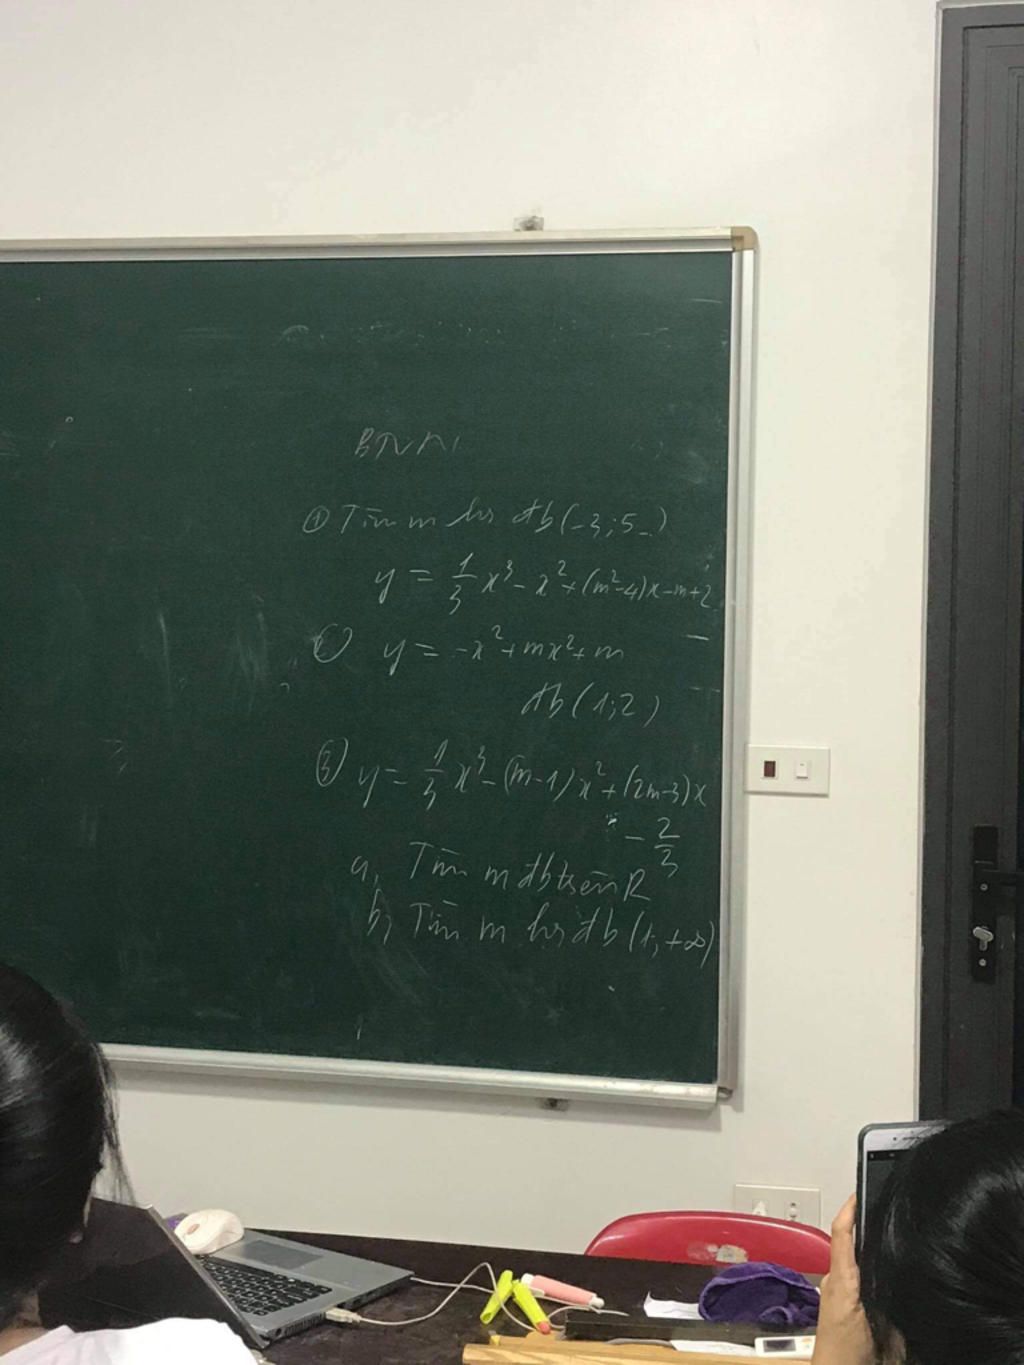 BTVN
① Tìm m hs đb (-3; 5)
y = 1/3 x³ - x² + (m²-4)x - m + 2
② y = -x² + mx² + m
đb (1; 2)
③ y = 1/3 x³ - (m-1)x² + (2m-3)x
- 2/3
a, Tìm m đb trên R
b, Tìm m hs đb (1; +∞)